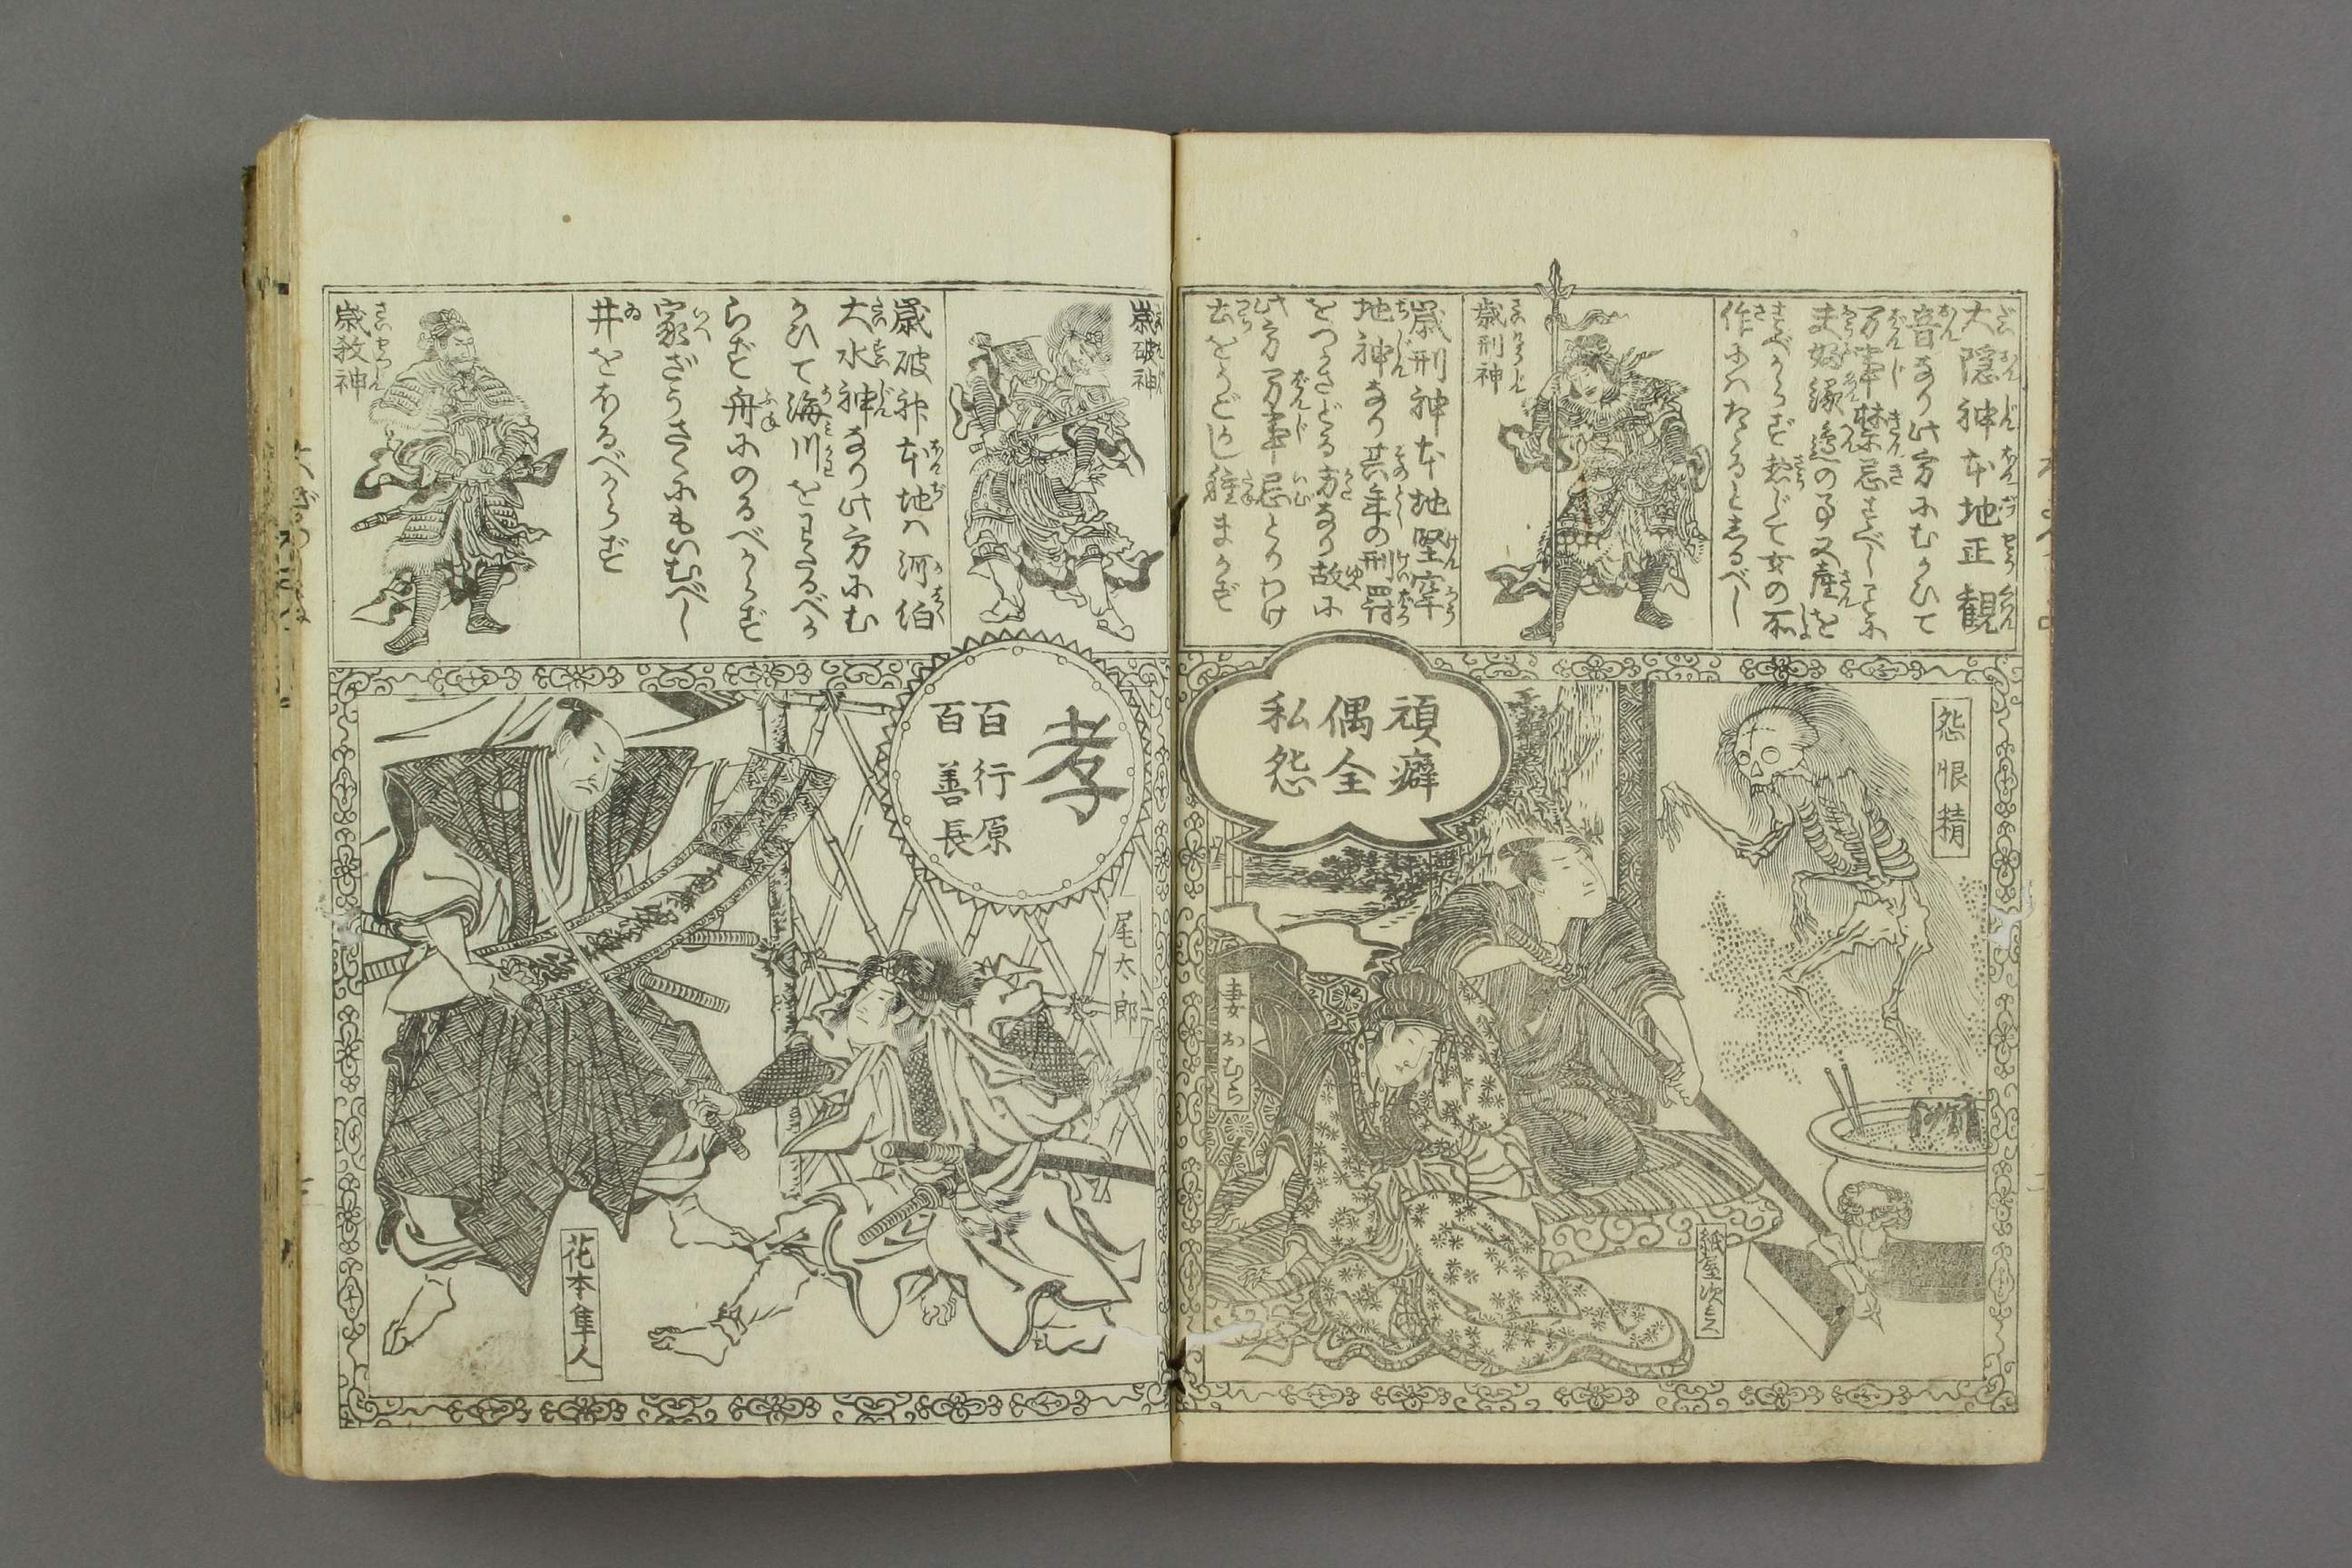 大隠神本地正観
音なり此方にむかひて
万事禁忌すべしことに
ま好縁邉の事又産を
すべからず惣じて女の所
作にハたゝると志るべし
歳刑神
歳刑神本地堅牢
地神なり其年の刑罸
をつかさどる方なり故に
此方万事忌とりわけ
土をうごかし種まかず
怨恨精
頑癖
偶全
私怨
妻おむら
紙屋次之
歳破神
歳破神本地ハ河伯
大水神なり此方にむ
かひて海川をわたるべか
らず舟にのるべからず
家ざうさくにもいむべし
井をほるべからず
歳殺神
孝
百行原
百善長
尾太郎
花本隼人